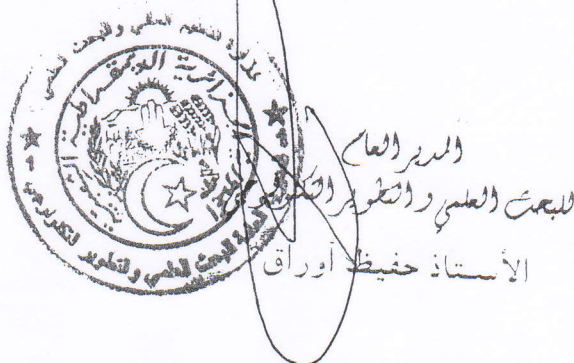 وزارة التعليم العالي والبحث العلمي
الجزائرية الديمقراطية
للبحث العلمي والتطوير التكنولوجي
المدير العام
للبحث العلمي و التطوير التكنولوجي
الأستاذ حفيظ أوراق